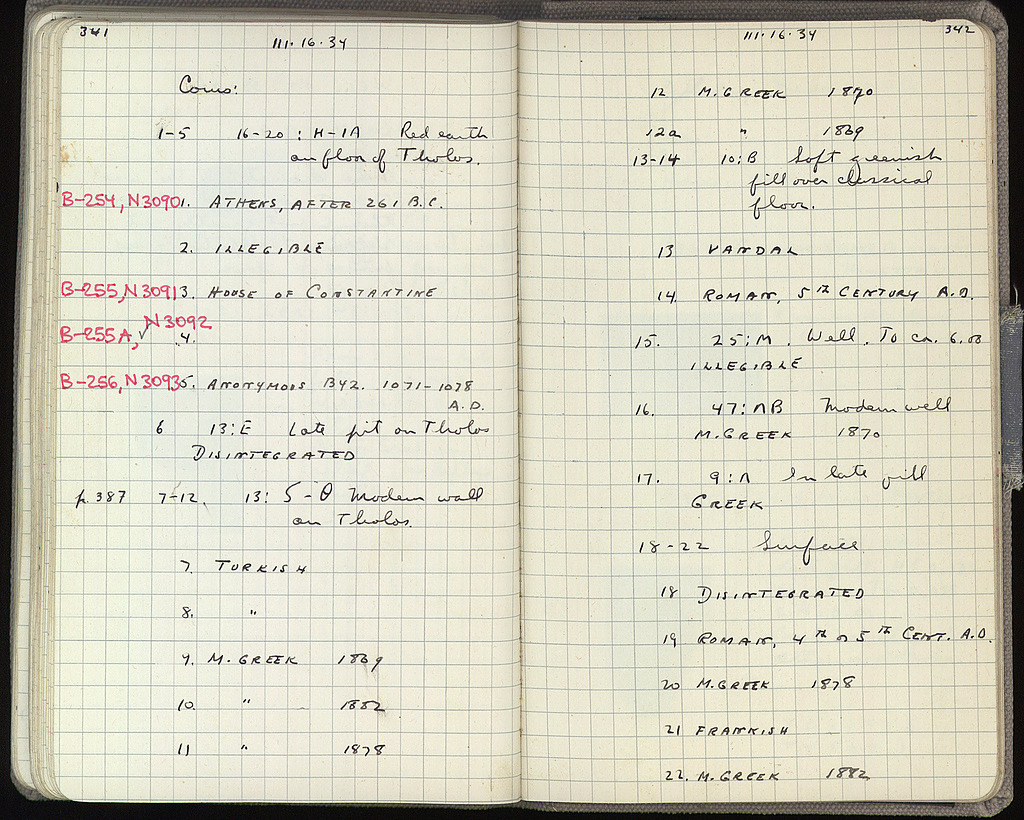 341
III·16·34
Coins:
1-5 16-20 : H-IA Red earth
on floor of Tholos.
B-254, N3090 1. ATHENS, AFTER 261 B.C.
2. ILLEGIBLE
B-255, N3091 3. HOUSE OF CONSTANTINE
B-255A, N3092 ✓ 4.
B-256, N3093 5. ANONYMOUS BYZ. 1071-1078
A.D.
6 13:E Late pit on Tholos
DISINTEGRATED
p. 387 7-12. 13: 5-Θ Modern wall
on Tholos.
7. TURKISH
8. "
9. M. GREEK 1869
10. " 1882
11 " 1878
342
III·16·34
12 M. GREEK 1870
12a " 1869
13-14 10:B Soft greenish
fill over classical
floor.
13 VANDAL
14. ROMAN, 5TH CENTURY A.D.
15. 25:M. Well. To ca. 6.00
ILLEGIBLE
16. 47:ΛB Modern well
M. GREEK 1870
17. 9:Λ In late fill
GREEK
18-22 Surface
18 DISINTEGRATED
19 ROMAN, 4TH or 5TH CENT. A.D.
20 M. GREEK 1878
21 FRANKISH
22. M. GREEK 1882